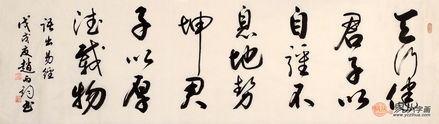 天行健
君子以
自强不
息地势
坤君
子以厚
德载物
语出易经
戊戌夏赵而询书
www.yzzhua.com